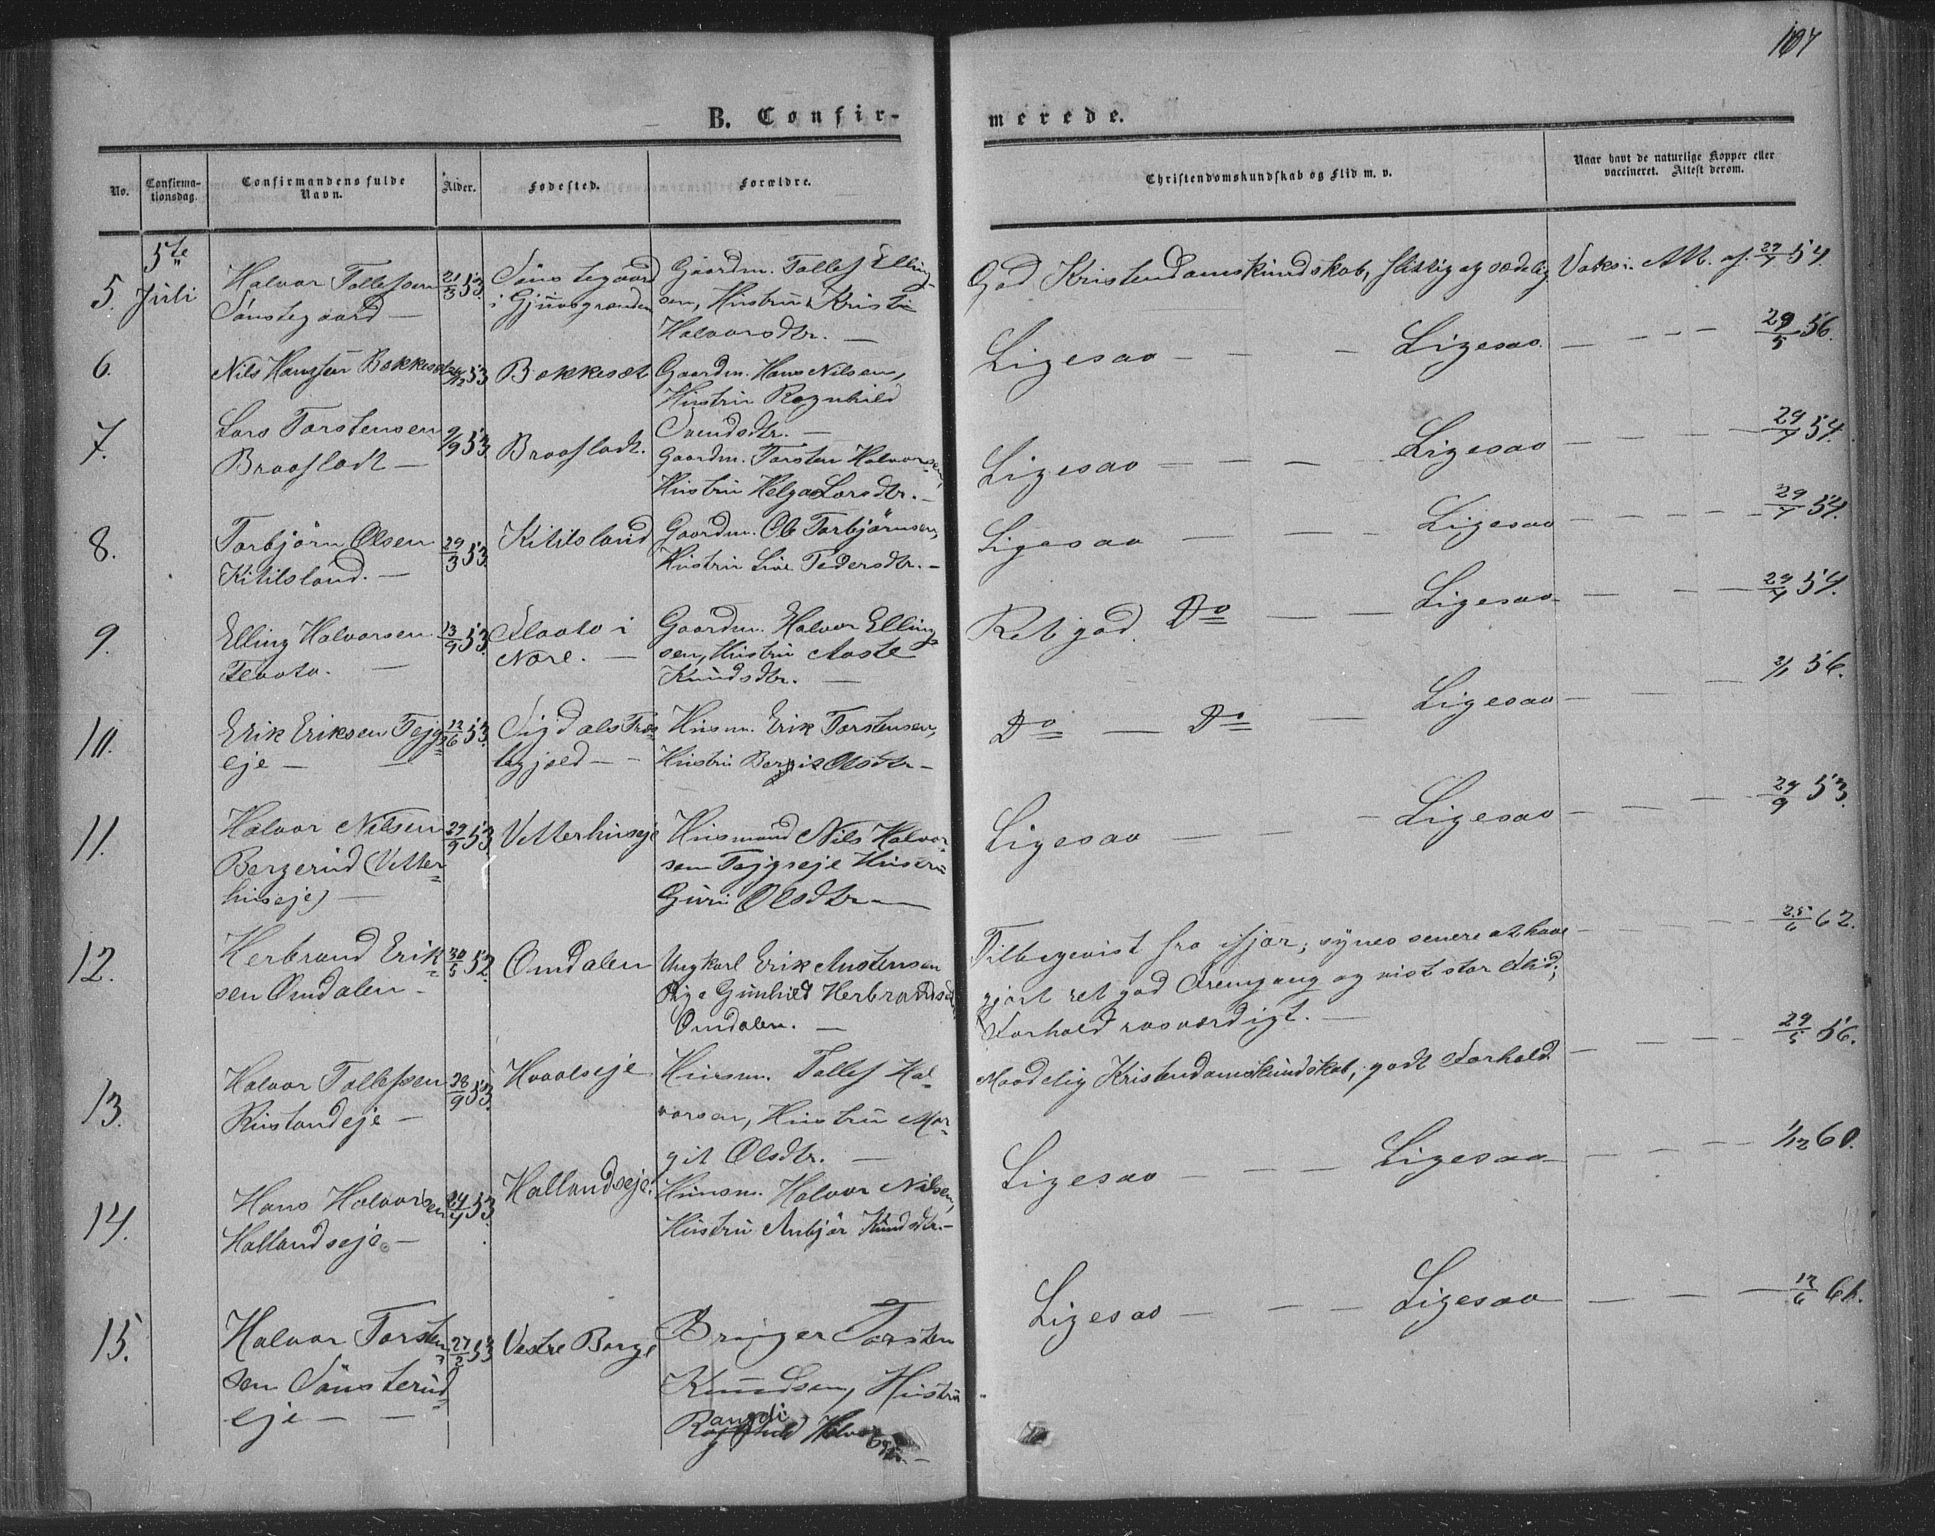 167
B. Confir-
merede.
No.
Confirma-
tionsdag.
Confirmandens fulde
Navn.
Alder.
Fødested.
Forældre.
Christendomskundskab og Flid m. v.
Naar havt de naturlige Kopper eller
vaccineret. Attest derom.
5te
5. Juli
Halvor Tollefsen
Sønstegaard —
21/3 53.
Sønstegaard
i Gjuvsgrænden
Gaardm. Tollef Elling-
sen, Hustru Kristi
Halvorsdtr. —
God Kristendomskundskab, flittig og sædelig
Vaksin. Att. af 29/7 54.
6.
Nils Hansen Bekkeset
53
Bekkeset
Gaardm. Hans Nilsen,
Hustru Ragnhild
Svendsdtr. —
Ligesaa — — — Ligesaa — — — 29/5 56.
7.
Lars Torstensen
Braafladt —
9/9 53
Braafladt.
Gaardm. Torsten Halvorsen,
Hustru Helga Larsdtr. —
Ligesaa — — — Ligesaa — — — 29/7 54.
8.
Torbjørn Olsen
Kitilsland. —
29/3 53.
Kitilsland
Gaardm. Ole Torbjørnsen,
Hustru Live Pedersdtr. —
Ligesaa — — — Ligesaa — — — 29/7 54.
9.
Elling Halvorsen
Flaata. —
13/9 53.
Flaata i
Nore. —
Gaardm. Halvor Elling-
sen, Hustru Aaste
Knudsdtr. —
Ret god. Do — — Ligesaa — — — 29/7 54.
10.
Erik Eriksen Tejgs-
eje — —
22/6 53.
Sigdals Præs-
tegjæld — —
Husm. Erik Torstensen,
Hustru Bergit Olsdtr —
Do — Do — Ligesaa — — — 2/1 56.
11.
Halvor Nilsen
Bergerud (Vetter-
huseje) —
29/9 53
Vetterhuseje
Husmand Nils Halvor-
sen Tejgseje Hustru
Guri Olsdtr —
Ligesaa — — — Ligesaa — — — 29/9 53.
12.
Herbrand Erik-
sen Omdalen —
30/5 52.
Omdalen
Ungkarl Erik Austensen
Pige Gunhild Herbrandsd.
Omdalen. —
Tilbagevist fra ifjor; synes senere at have
gjort ret god Fremgang og vist stor Flid;
Forhold rosværdigt. —
25/6 62.
13.
Halvor Tollefsen
Rustandeje —
28/9 53.
Hvaalseje
Husm. Tollef Hal-
vorsen, Hustru Mar-
git Olsdtr. —
Maadelig Kristendomskundskab, godt Forhold — — — 29/5 56.
14.
Hans Halvorsen
Hallandseje —
24/4 53.
Hallandseje.
Husm. Halvor Nilsen,
Hustru Anbjør Knudsdtr. —
Ligesaa — — — Ligesaa — — — 1/12 60.
15.
Halvor Torsten-
sen Sønsterud-
eje — —
27/2 53
Vestre Borge
Bruger Torsten
Knudsen, Hustru
Rangdi Halvorsdtr. —
Ligesaa — — — Ligesaa — — — 12/6 61.